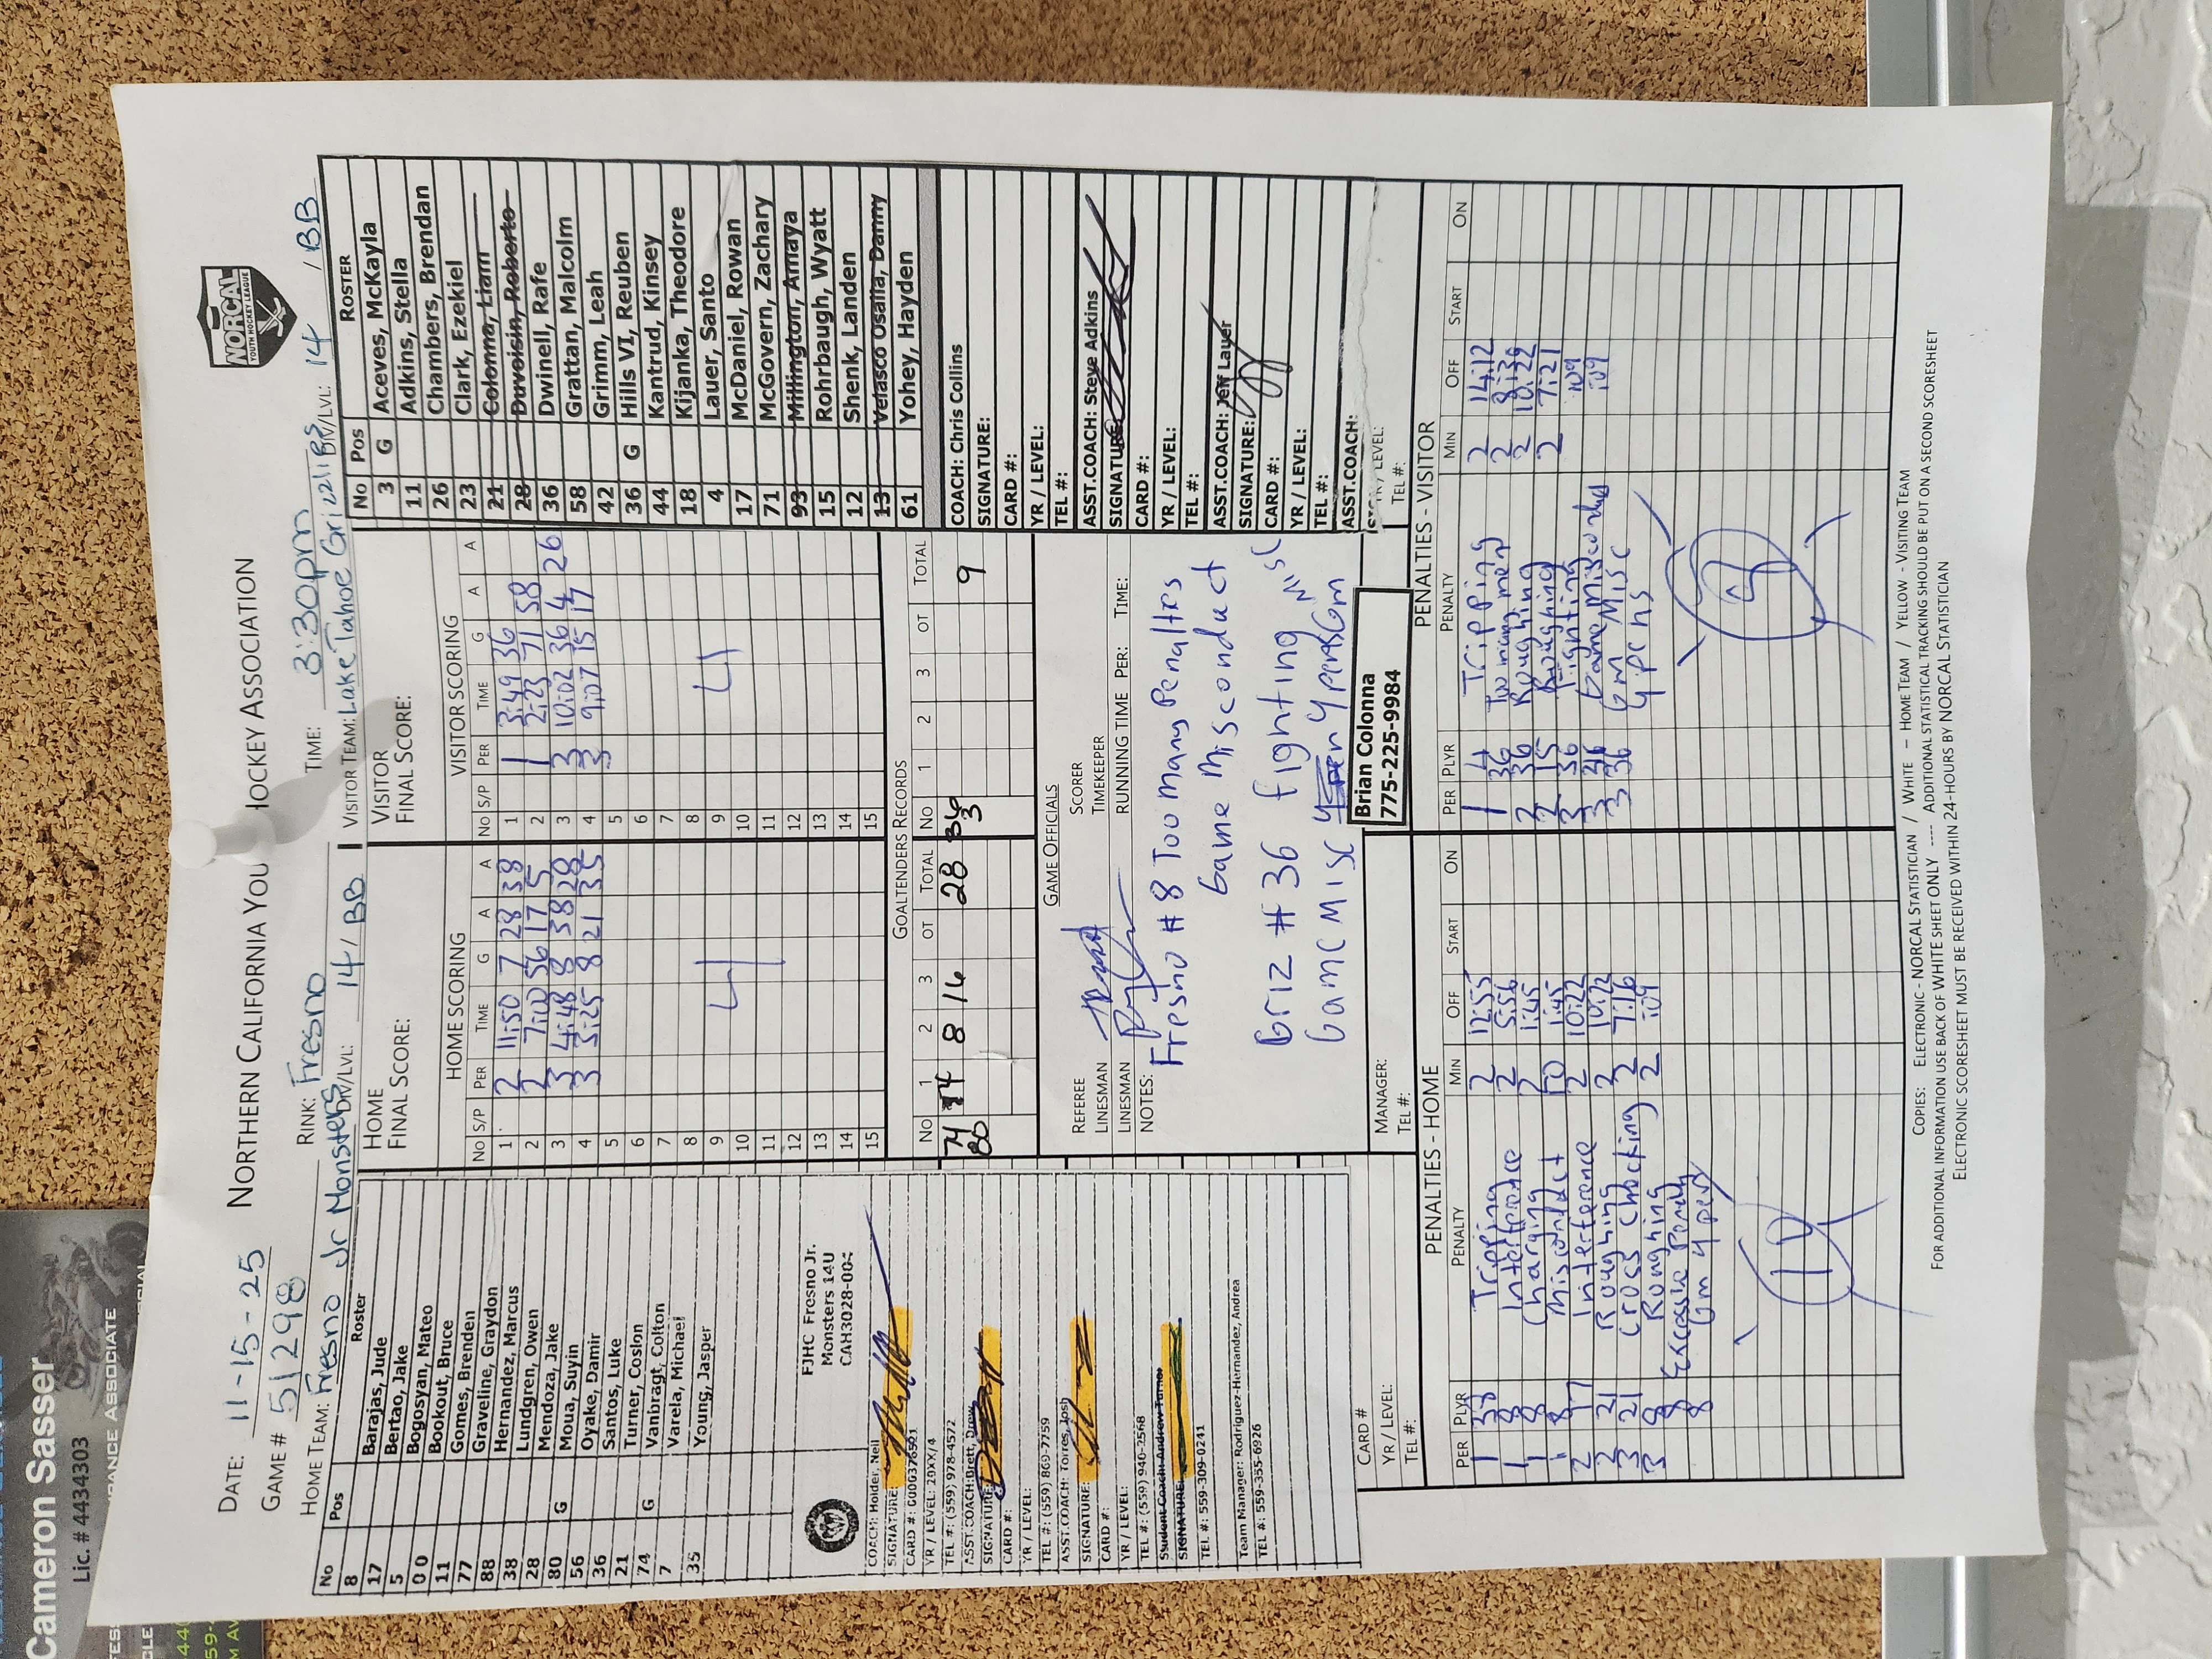 Cameron Sasser
Lic. # 4434303
DATE: 11-15-25
NORTHERN CALIFORNIA YOU HOCKEY ASSOCIATION
NORCAL
YOUTH HOCKEY LEAGUE
GAME # 51298
RINK: Fresno
TIME: 3:30pm
HOME TEAM: Fresno Jr Monsters DIV/LVL: 14 / BB
VISITOR TEAM: Lake Tahoe Grizzlies DIV/LVL: 14 / BB
No Pos Roster
8 Barajas, Jude
17 Bertao, Jake
5 Bogosyan, Mateo
0 0 Bookout, Bruce
11 Gomes, Brenden
77 Graveline, Graydon
88 Hernandez, Marcus
38 Lundgren, Owen
28 Mendoza, Jake
80 G Moua, Suyin
56 Oyake, Damir
36 Santos, Luke
21 Turner, Coslon
74 G Vanbragt, Colton
7 Varela, Michael
35 Young, Jasper
FJHC Fresno Jr.
Monsters 14U
COACH: Holder, Neil
SIGNATURE:
YR / LEVEL: 20XX/4
TEL #: (559) 978-4572
ASST.COACH: Brett, Drew
SIGNATURE:
CARD #:
YR / LEVEL:
TEL #: (559) 860-7759
ASST.COACH: Torres, Josh
SIGNATURE:
CARD #:
YR / LEVEL:
TEL #: (559) 940-2568
Student Coach: Andrew Turner
SIGNATURE:
TEL #: 559-309-0241
Team Manager: Rodriguez-Hernandez, Andrea
TEL #: 559-355-6926
CARD #
YR / LEVEL:
TEL #:
HOME
FINAL SCORE:
HOME SCORING
No S/P PER TIME G A A
1 2 11:50 7 28 38
2 2 7:00 56 17 5
3 3 4:48 8 38 28
4 3 3:25 8 21 35
5
6
7
8
9 4
10
11
12
13
14
15
VISITOR
FINAL SCORE:
VISITOR SCORING
No S/P PER TIME G A A
1 1 3:49 36
2 1 2:23 71 58
3 3 10:02 36 4 26
4 3 9:07 15 17
5
6
7
8
9 4
10
11
12
13
14
15
GOALTENDERS RECORDS
No 1 2 3 OT TOTAL No 1 2 3 OT TOTAL
74 8 16 28 36 9
80 3
GAME OFFICIALS
REFEREE
LINESMAN
LINESMAN
SCORER
TIMEKEEPER
RUNNING TIME PER: TIME:
NOTES: Fresno #8 Too many Penaltys
Game Misconduct
Griz #36 fighting
Game Misc 4 pens Gm Misc
MANAGER:
TEL #:
Brian Colonna
775-225-9984
No Pos ROSTER
3 G Aceves, McKayla
11 Adkins, Stella
26 Chambers, Brendan
23 Clark, Ezekiel
21 Colonna, Liam
28 Duvoisin, Roberto
36 Dwinell, Rafe
58 Grattan, Malcolm
42 Grimm, Leah
36 G Hills VI, Reuben
44 Kantrud, Kinsey
18 Kijanka, Theodore
4 Lauer, Santo
17 McDaniel, Rowan
71 McGovern, Zachary
93 Millington, Amaya
15 Rohrbaugh, Wyatt
12 Shenk, Landen
13 Velasco Osalla, Danny
61 Yohey, Hayden
COACH: Chris Collins
SIGNATURE:
CARD #:
YR / LEVEL:
TEL #:
ASST.COACH: Steve Adkins
SIGNATURE:
CARD #:
YR / LEVEL:
TEL #:
ASST.COACH: Jeff Lauer
SIGNATURE:
CARD #:
YR / LEVEL:
TEL #:
ASST.COACH:
YR / LEVEL:
TEL #:
PENALTIES - HOME
PER PLYR PENALTY MIN OFF START ON
1 38 Tripping 2 12:55
1 8 Interference 2 5:56
1 8 Charging 2 1:45
1 8 Misconduct 10 1:45
2 17 Interference 2 10:22
2 21 Roughing 2 10:12
3 21 Cross Checking 2 7:16
3 8 Roughing 2 :09
8 Excessive Penalty
8 Gm 4 pen
PENALTIES - VISITOR
PER PLYR PENALTY MIN OFF START ON
1 4 Tripping 2 14:12
36 Too many men 2 8:39
2 36 Roughing 2 10:22
2 15 Roughing 2 7:21
3 36 Fighting :09
3 46 Game Misconduct :09
3 36 Gm Misc
4 pens
COPIES: ELECTRONIC - NORCAL STATISTICIAN / WHITE – HOME TEAM / YELLOW - VISITING TEAM
FOR ADDITIONAL INFORMATION USE BACK OF WHITE SHEET ONLY ---- ADDITIONAL STATISTICAL TRACKING SHOULD BE PUT ON A SECOND SCORESHEET
ELECTRONIC SCORESHEET MUST BE RECEIVED WITHIN 24-HOURS BY NORCAL STATISTICIAN